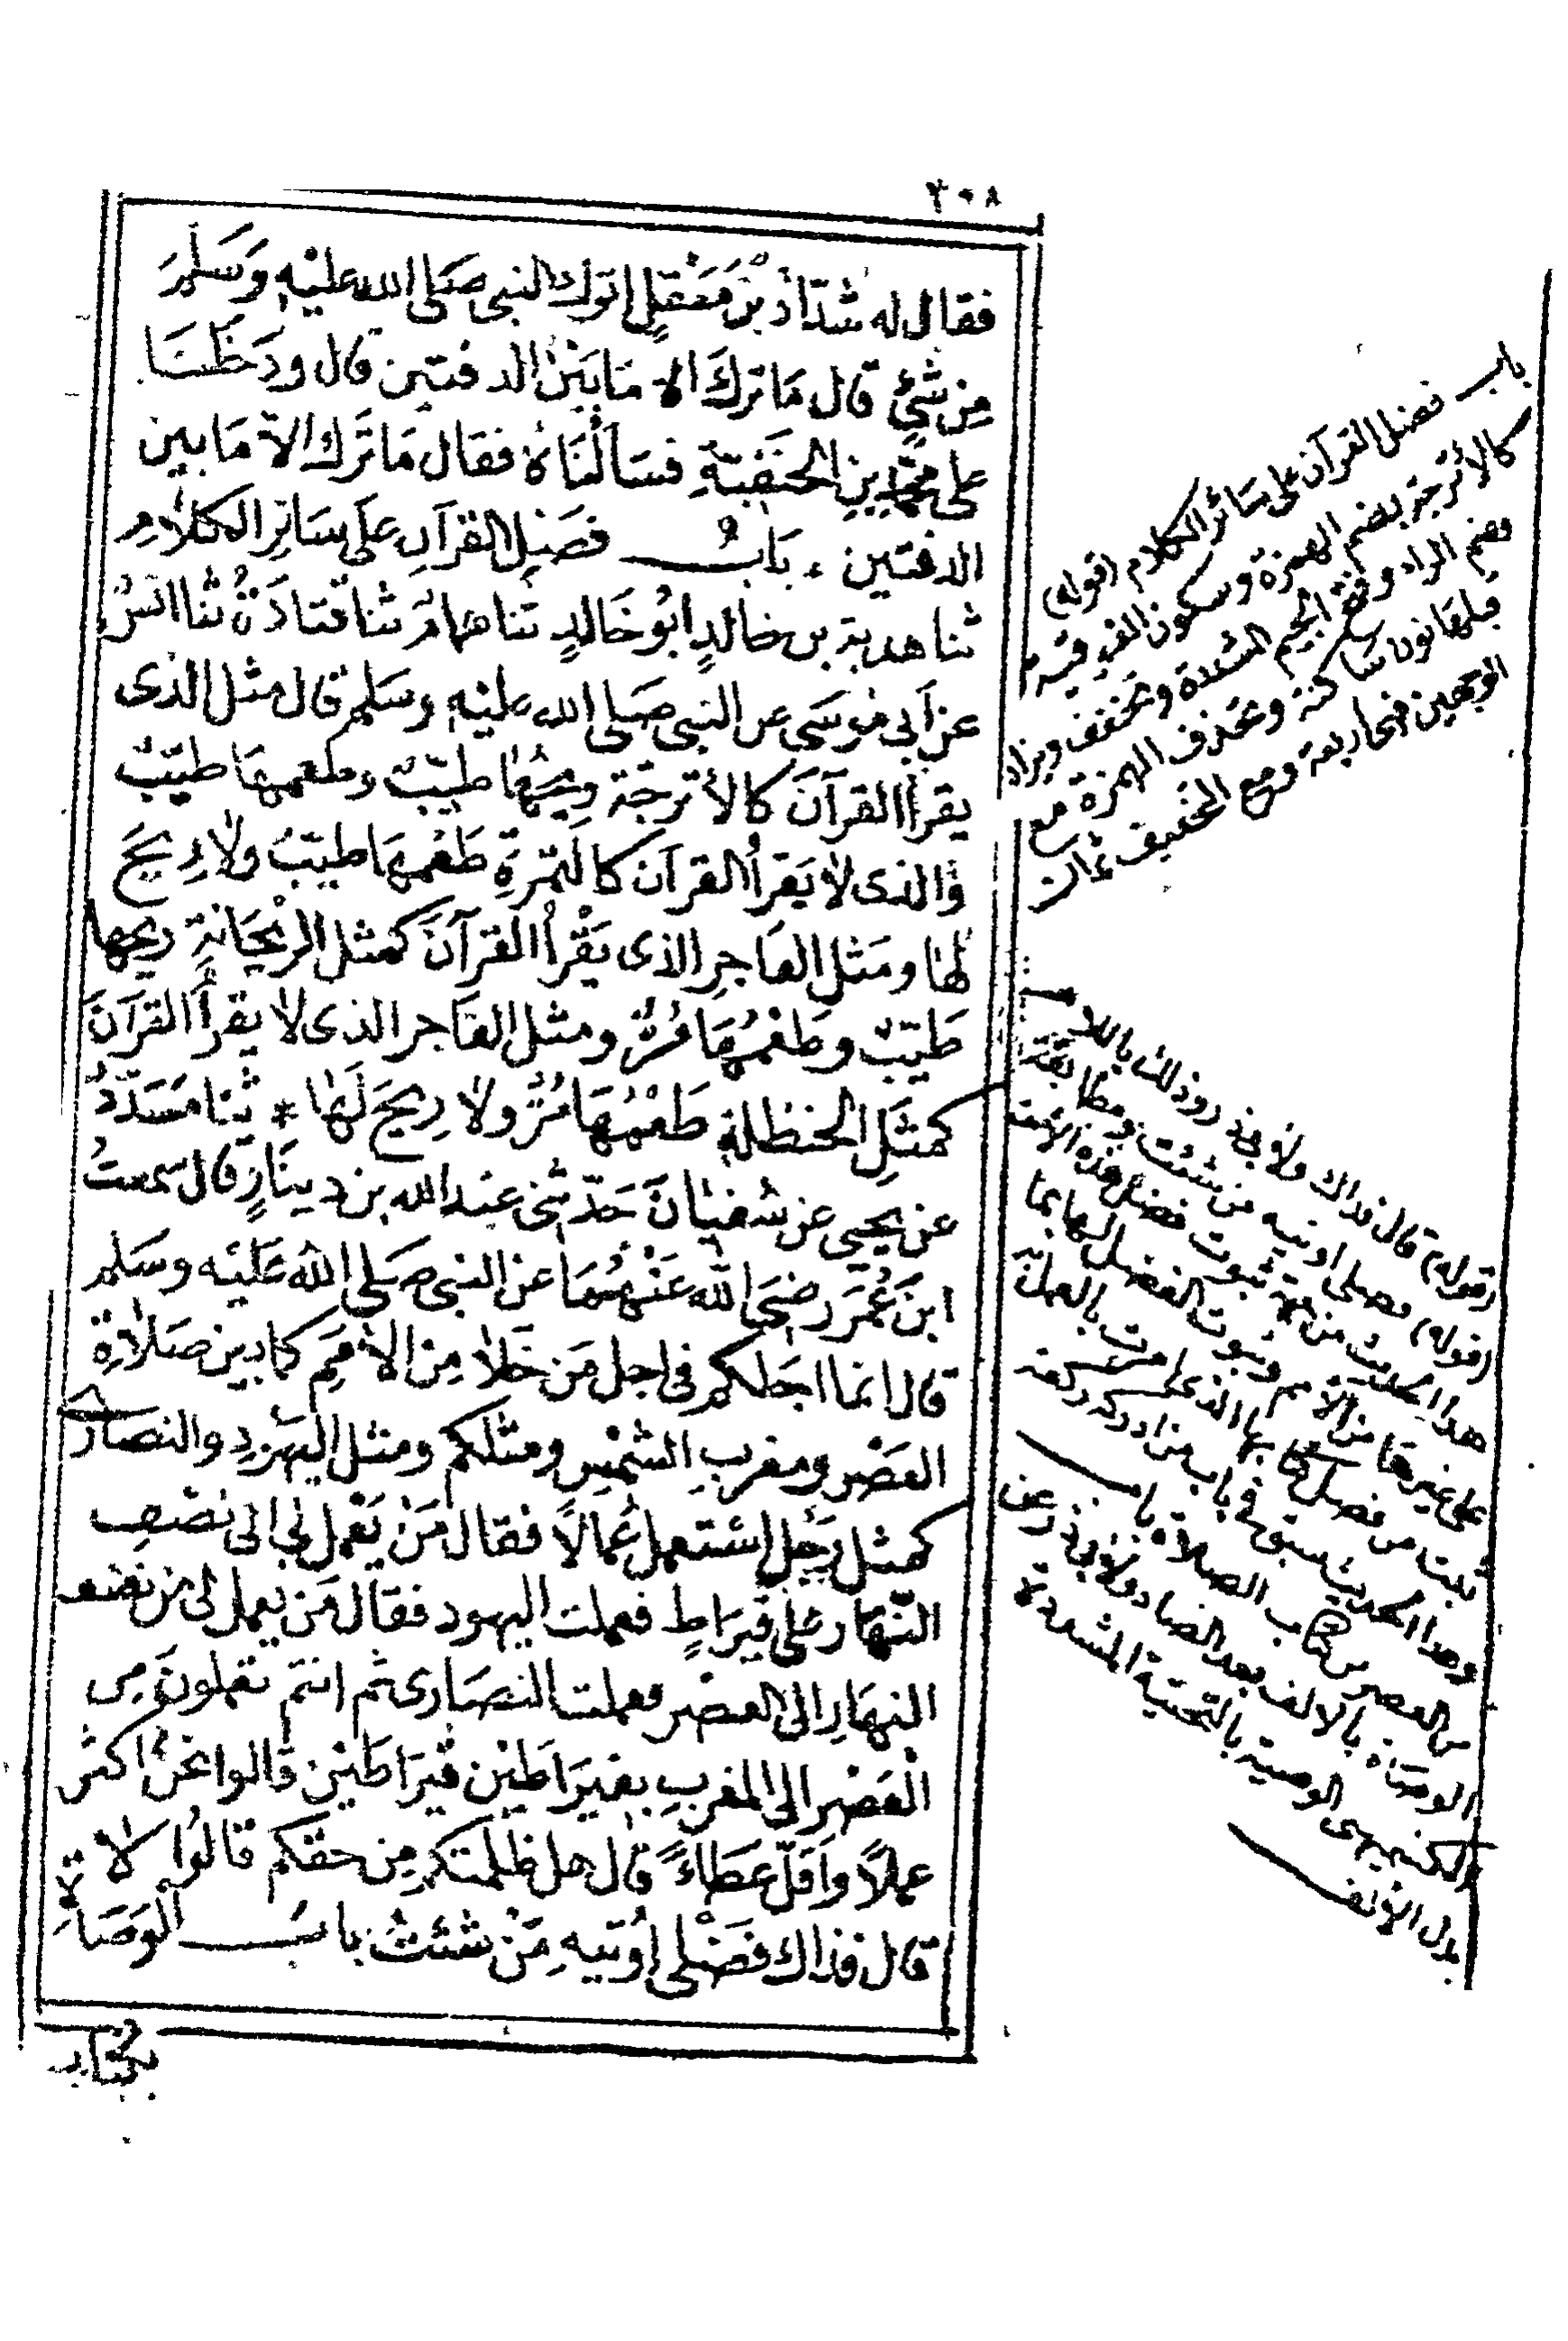 ٣٠٨
فقال له شدّاد بن مَعْقِلٍ اترك النبى صَلى الله عليْهِ وَسَلمَ
مِن شئٍ قال مَا تركَ الا مَا بَيْنَ الدفتين قال ودَخَلنَا
على محمّد بنِ الحنَفيّةِ فسَألْنَاهُ فقال مَا تَرَك الاّ مَا بين
الدفتين ٠ بَابُ فَضْلِ القرآنِ عَلَى سَائِرِ الكلامِ
ثنا هدبة بن خالدٍ ابُو خَالدٍ ثنا همامٌ ثنا قتادَةُ ثنا انسٌ
عن اَبى مُوسَى عن النبى صَلى الله عليْهِ وسَلم قال مثل الذى
يقرأ القرآنَ كالأترجّة رِيحُهَا طيّبٌ وطعمهَا طيّبٌ
وَالذى لا يَقرأُ القرآن كالتمْرةِ طَعْمهَا طيّبٌ ولا رِيحَ
لهَا ومَثل الفاجِرِ الذى يَقْرأُ القرآنَ كمثل الرّيحَانةِ ريحها
طَيّبٌ وطَعْمُهَا مُرٌّ ومثل الفَاجر الذى لا يقرأُ القرآنَ
كمثَلِ الحنظلةِ طَعْمُهَا مُرٌّ ولا رِيحَ لَهَا * ثنا مُسَدّدٌ
عن يحيى عن سُفيَانَ حَدّثنى عبد الله بن دينَارٍ قال سمعتُ
ابنَ عُمَرَ رضىَ الله عَنْهُمَا عن النبى صَلى الله عَليْه وسَلم
قال انما اجَلكم فى اجل مَن خَلاَ مِن الاُمَمِ كما بين صَلاةِ
العَصْر ومغربِ الشمْسِ ومثلكم ومثل اليَهُودِ والنصَارَى
كمثل رَجُلٍ اسْتعمل عُمالاً فقال مَنْ يَعْمل لى الى نصْفِ
النّهَار على قيرَاطٍ فعملت اليهود فقال مَن يعمل لى من نصْف
النهَارِ الى العصْر فعملت النصَارى ثم انتم تعملونَ من
العَصْر الى المغربِ بقيرَاطَيْن قيرَاطَيْن قالوا نحنُ اكثر
عملاً وَاَقلّ عَطاءً قال هل ظلمتكم مِن حقكم قالُوا لا
قال فذاك فَضْلى اُوتيهِ مَنْ شئتُ بابُ الْوَصَاةِ
بكتاب
باب فضل القرآن على سَائر الكلام (قوله)
كالاترجّة بضم الهمزة وسكون الفوقية
وضم الراء وفتح الجيم المشددة وتخفف ويزاد
قبلها نون ساكنة وتحذف الهمزة مع
الوجهين فهى اربعة ومع التخفيف ثمان
(قوله) قال فذاك ولابى ذر وذلك باللام
(قوله) فضلى اوتيه من شئت ومطابقة
هذا الحديث من جهة ثبوت فضل هذه الامة
على غيرها من الامم وثبوت الفضل لها بما
ثبت من فضل كتابها الذى امرت بالعمل به
وهذا الحديث سبق فى باب من ادرك ركعة
من العصر من كتاب الصلاة باب
الوصاة بالالف بعد الصاد ولابى ذر عن
الكشميهنى الوصية بالتحتية المشددة
بدل الالف